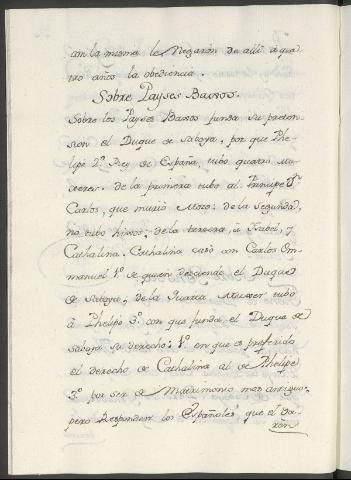 con la misma le Negarón de alli à qua
tro años la obediencia.
Sobre Payses Baxos.
Sobre los Payses Baxos funda su preten
sion el Duque de Saboya, por que Phe-
lipe 2º Rey de España, tubo quatro Mu-
xeres. de la primera tubo al Principe Dn
Carlos, que murió Mozo: de la Segunda,
no tubo hixos; de la tercera, à Isabel, y
Cathalina. Cathalina casò con Carlos Em
manuel 1º de quien desciende el Duque
de Saboya; de la Quarta Muxer tubo
à Phelipe 3º con que funda el Duque de
Saboya su derecho; 1º en que es preferido
el derecho de Cathalina al de Phelipe
3º por ser de Matrimonio mas antiguo;
pero Responden los Españoles, que el Va-
rón